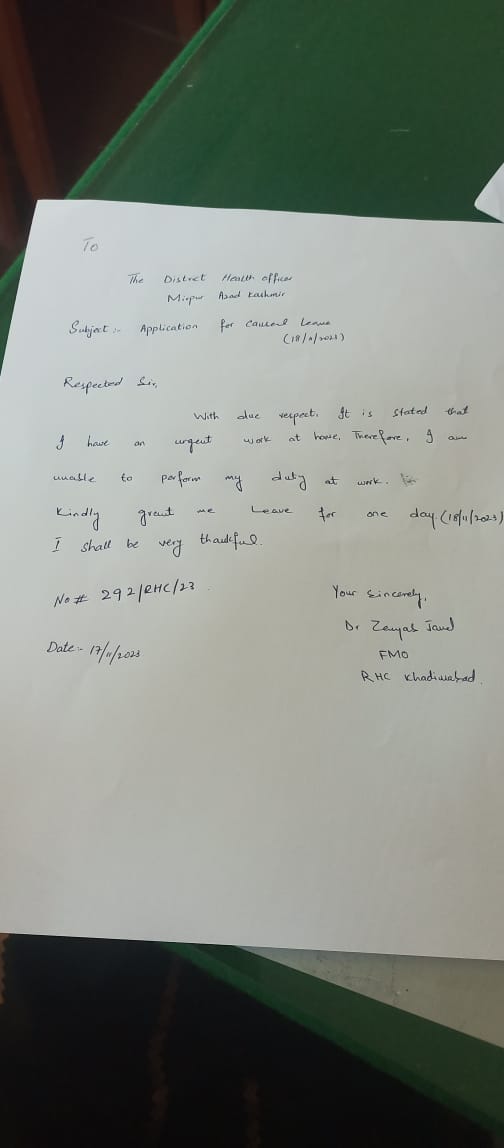 To
The District Health officer
Mirpur Azad Kashmir
Subject :- Application for Causal Leave
(18/11/2023)
Respected Sir,
With due respect. It is stated that
I have an urgent work at home. Therefore, I am
unable to perform my duty at work.
Kindly grant me Leave for one day.(18/11/2023)
I shall be very thankful.
No # 292/RHC/23
Your Sincerely,
Dr Zenyab
Date:- 17/11/2023
FMO
RHC